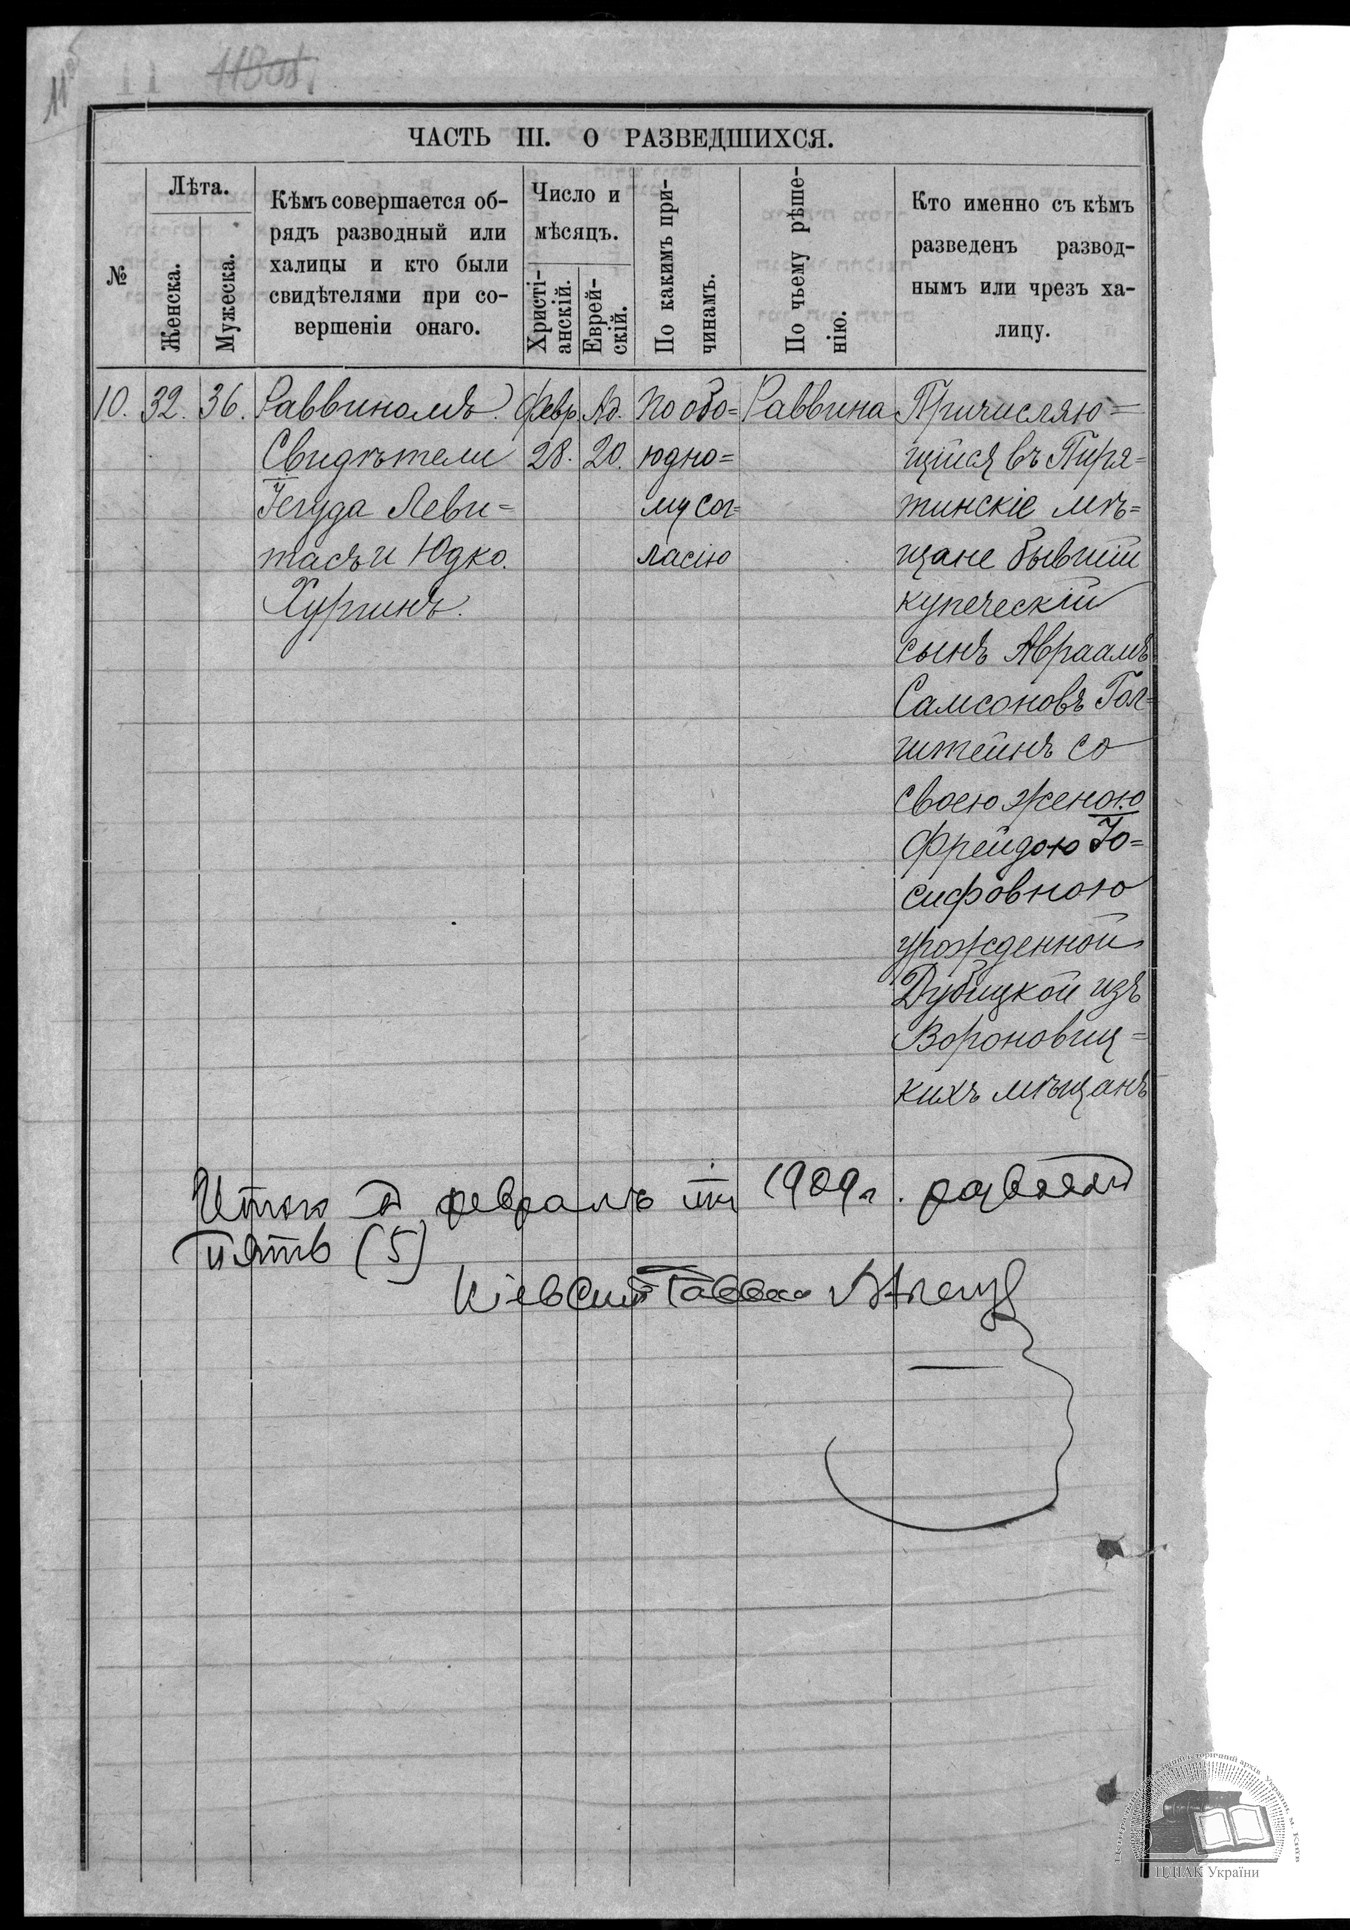 11
11
ЧАСТЬ III. О РАЗВЕДШИХСЯ.
№
Лѣта.
Женска.
Мужеска.
Кѣмъ совершается об-
рядъ разводный или
халицы и кто были
свидѣтелями при со-
вершеніи онаго.
Число и
мѣсяцъ.
Христі-
анскій.
Еврей-
скій.
По какимъ при-
чинамъ.
По чьему рѣше-
нію.
Кто именно съ кѣмъ
разведенъ развод-
нымъ или чрезъ ха-
лицу.
10.
32.
36.
Раввиномъ.
Свидѣтели
Іегуда Леви=
тасъ и Юдко
Хургинъ.
Февр.
28.
Ад.
20.
По обо=
юдно=
му сог=
ласію
Раввина
Причисляю=
щійся въ Пиря=
тинскіе мѣ=
щане бывшій
купеческій
сынъ Авраамъ
Самсоновъ Гол=
штейнъ со
своею женою
Фрейдою Іо=
сифовною
урожденной
Дубицкой изъ
Вороновиц=
кихъ мѣщанъ
Итого въ февралѣ м. 1909 г. разводовъ
пять (5)
Кіевскій Раввинъ
Центральний державний історичний архів України, м. Київ
ЦДІАК України